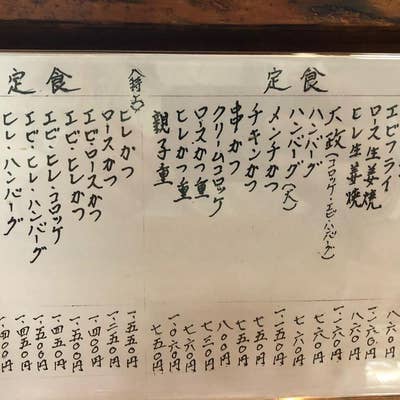 定食
エビフライ
ロース生姜焼
ヒレ生姜焼
大政(コロッケ・エビ・ハンバーグ)
ハンバーグ
ハンバーグ(大)
メンチかつ
チキンかつ
串かつ
クリームコロッケ
ロースかつ重
ヒレかつ重
親子重
八六〇円
八六〇円
七六〇円
七五〇円
七五〇円
八〇〇円
七三〇円
七六〇円
一・〇六〇円
七五〇円
定食
(特上)
ヒレかつ
ロースかつ
エビ・ロースかつ
エビ・ヒレかつ
エビ・ヒレ・コロッケ
エビ・ヒレ・ハンバーグ
ヒレ・ハンバーグ
一・五五〇円
一・二五〇円
一・四〇〇円
一・五〇〇円
一・四五〇円
一・五五〇円
一・四〇〇円